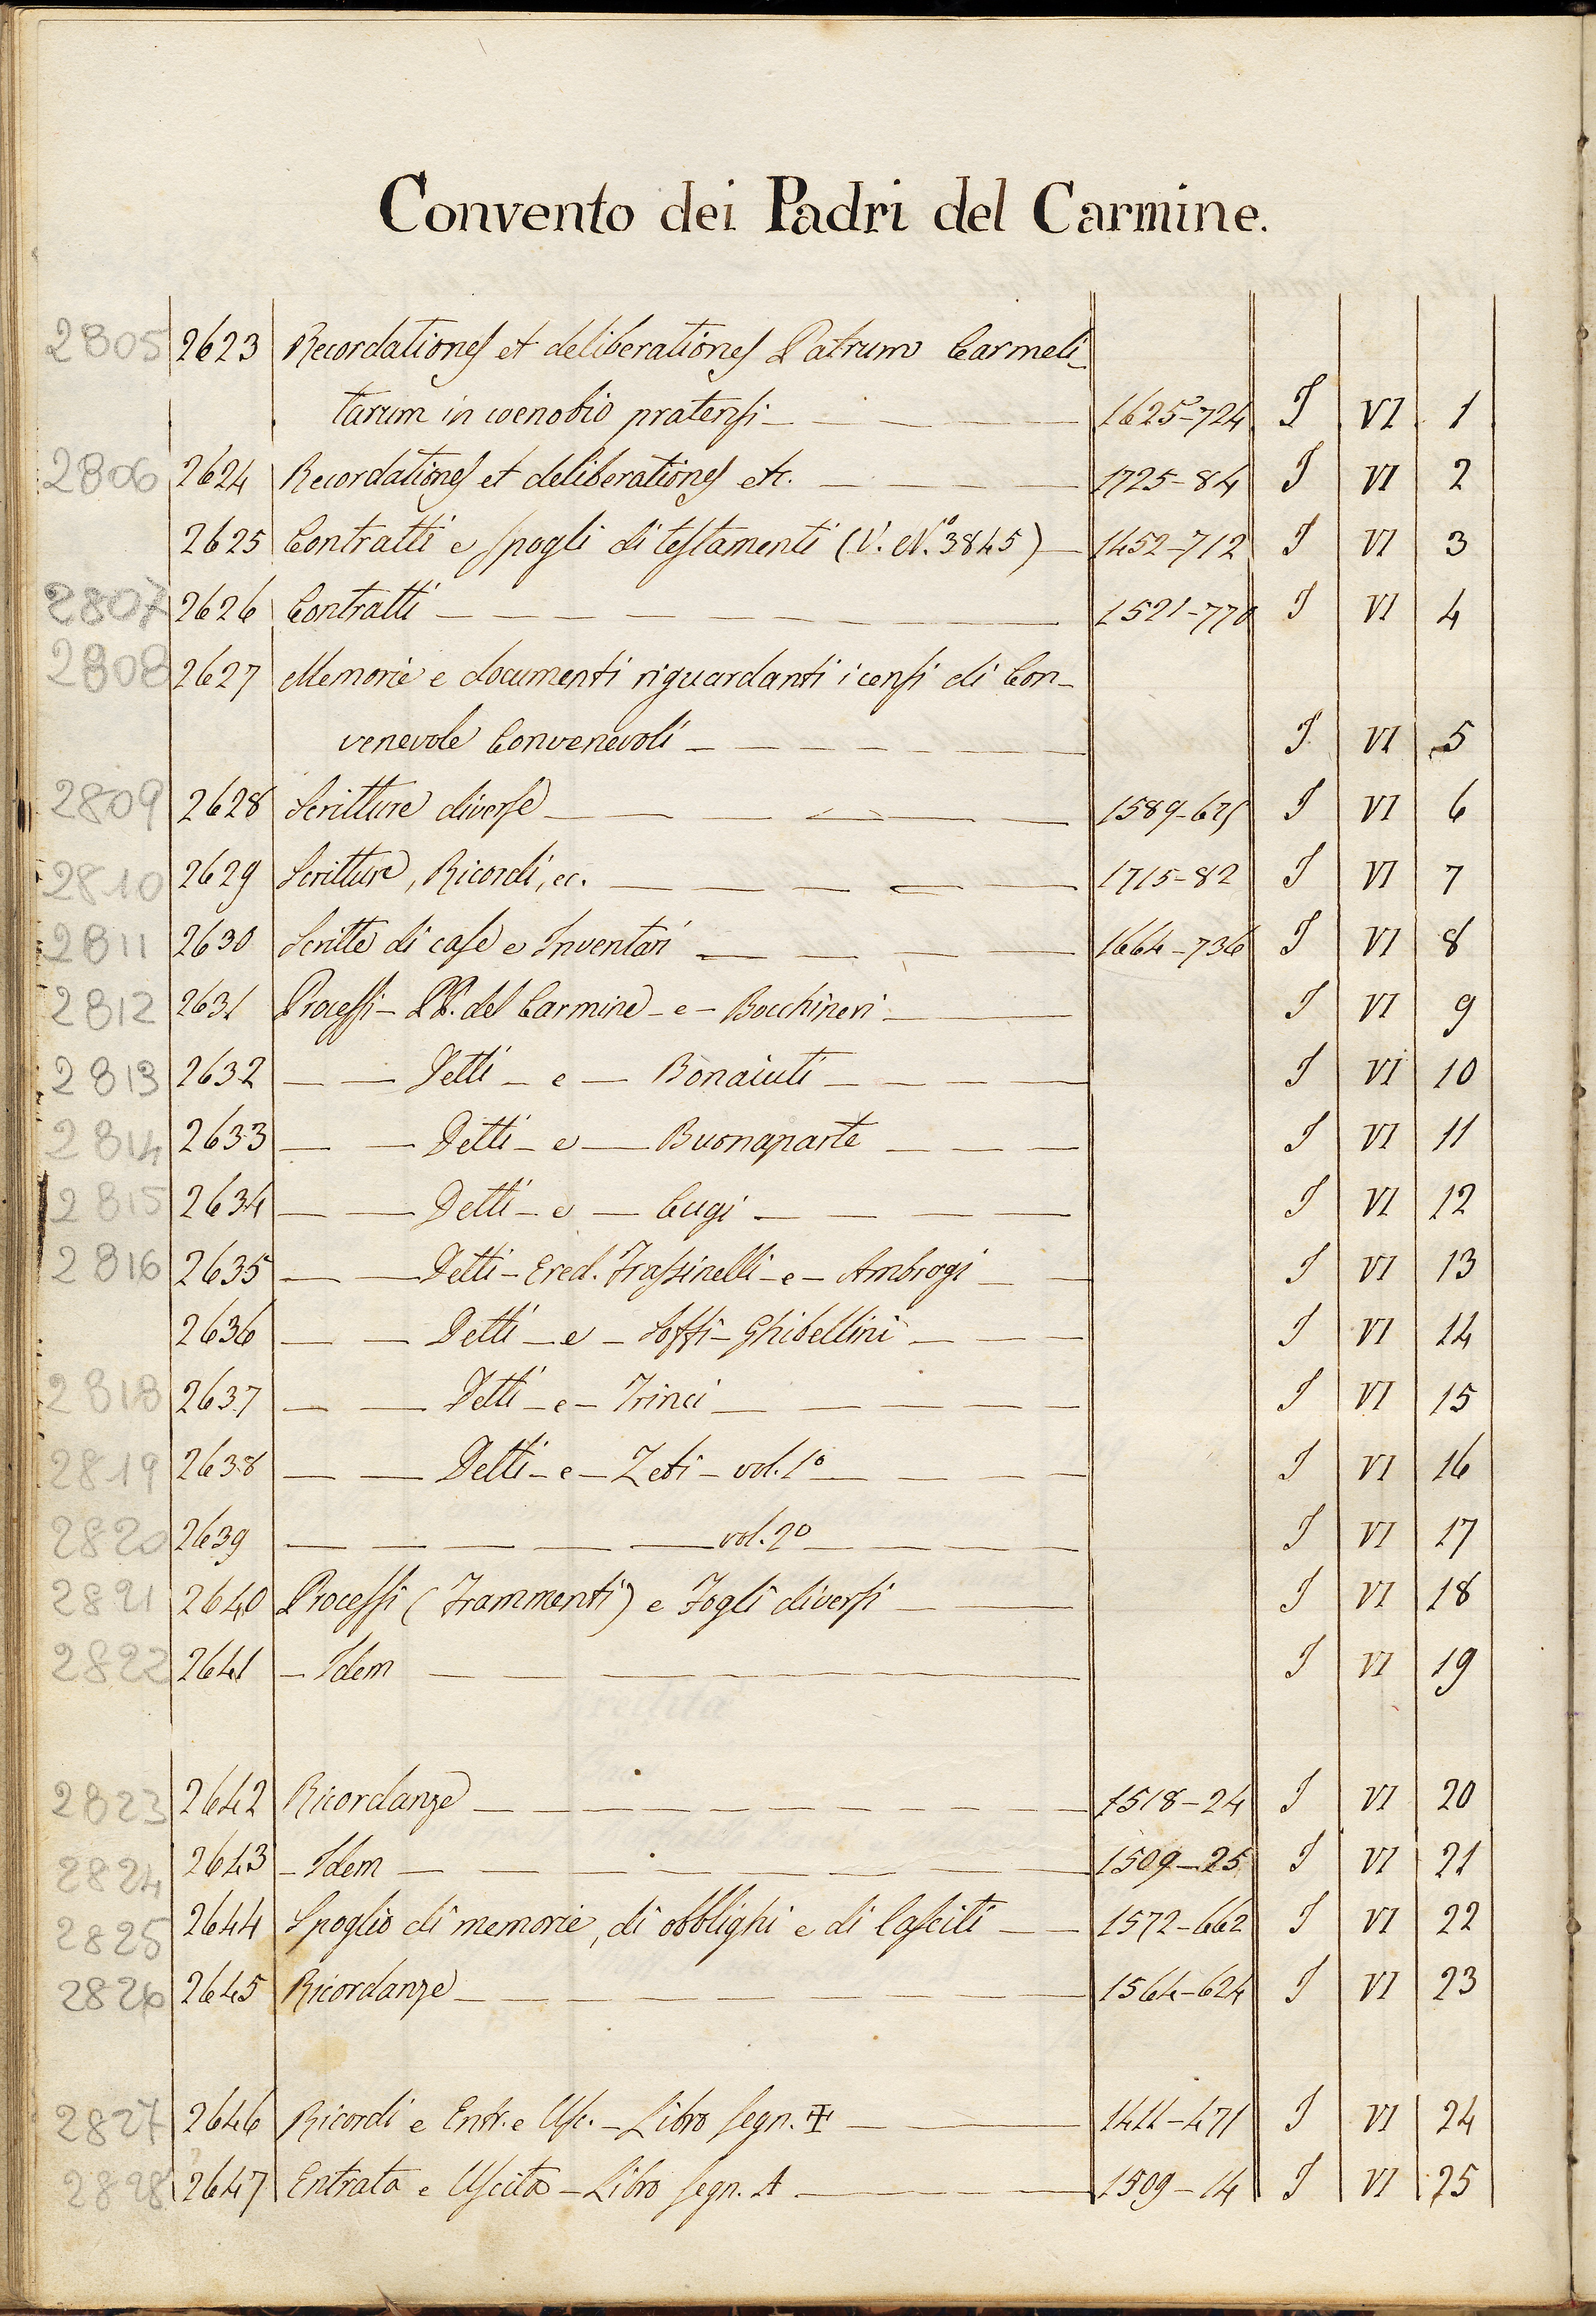 Convento dei Padri del Carmine.
2805 2623 Recordationes et deliberationes Patrum Carmeli-
tarum in coenobio pratensi 1625-724 I VI 1
2806 2624 Recordationes et deliberationes etc. 1725-84 I VI 2
2625 Contratti e spogli di testamenti (V. N.° 3845) 1452-712 I VI 3
2807 2626 Contratti 1521-770 I VI 4
2808 2627 Memorie e documenti riguardanti i censi di Con-
venevole Convenevoli I VI 5
2809 2628 Scritture diverse 1589-625 I VI 6
2810 2629 Scritture, Ricordi, ec. 1715-82 I VI 7
2811 2630 Scritte di case e Inventari 1664-736 I VI 8
2812 2631 Processi - PP. del Carmine - e - Bocchineri I VI 9
2813 2632 — — Detti - e - Bonaiuti I VI 10
2814 2633 — — Detti - e - Buonaparte I VI 11
2815 2634 — — Detti - e - Cugi I VI 12
2816 2635 — — Detti - Ered. Frassinelli - e - Ambrogi I VI 13
2636 — — Detti - e - Soffi-Ghibellini I VI 14
2818 2637 — — Detti - e - Trinci I VI 15
2819 2638 — — Detti - e - Zeti - vol. 1° I VI 16
2820 2639 — — — — — vol. 2° I VI 17
2821 2640 Processi (Frammenti) e Fogli diversi I VI 18
2822 2641 - Idem I VI 19
2823 2642 Ricordanze 1518-24 I VI 20
2824 2643 - Idem 1509-25 I VI 21
2825 2644 Spoglio di memorie, di obblighi e di lasciti 1572-662 I VI 22
2826 2645 Ricordanze 1564-624 I VI 23
2827 2646 Ricordi e Entr. e Usc. - Libro segn. ✠ 1411-471 I VI 24
2828 2647 Entrata e Uscita - Libro segn. A 1509-14 I VI 25